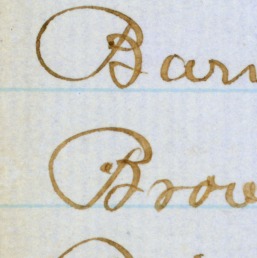 Barn
Brow